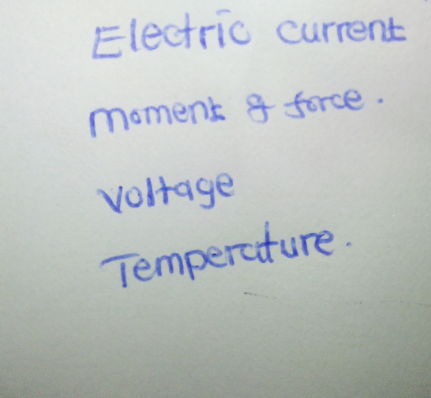 Electric current
moment & force.
voltage
Temperature.